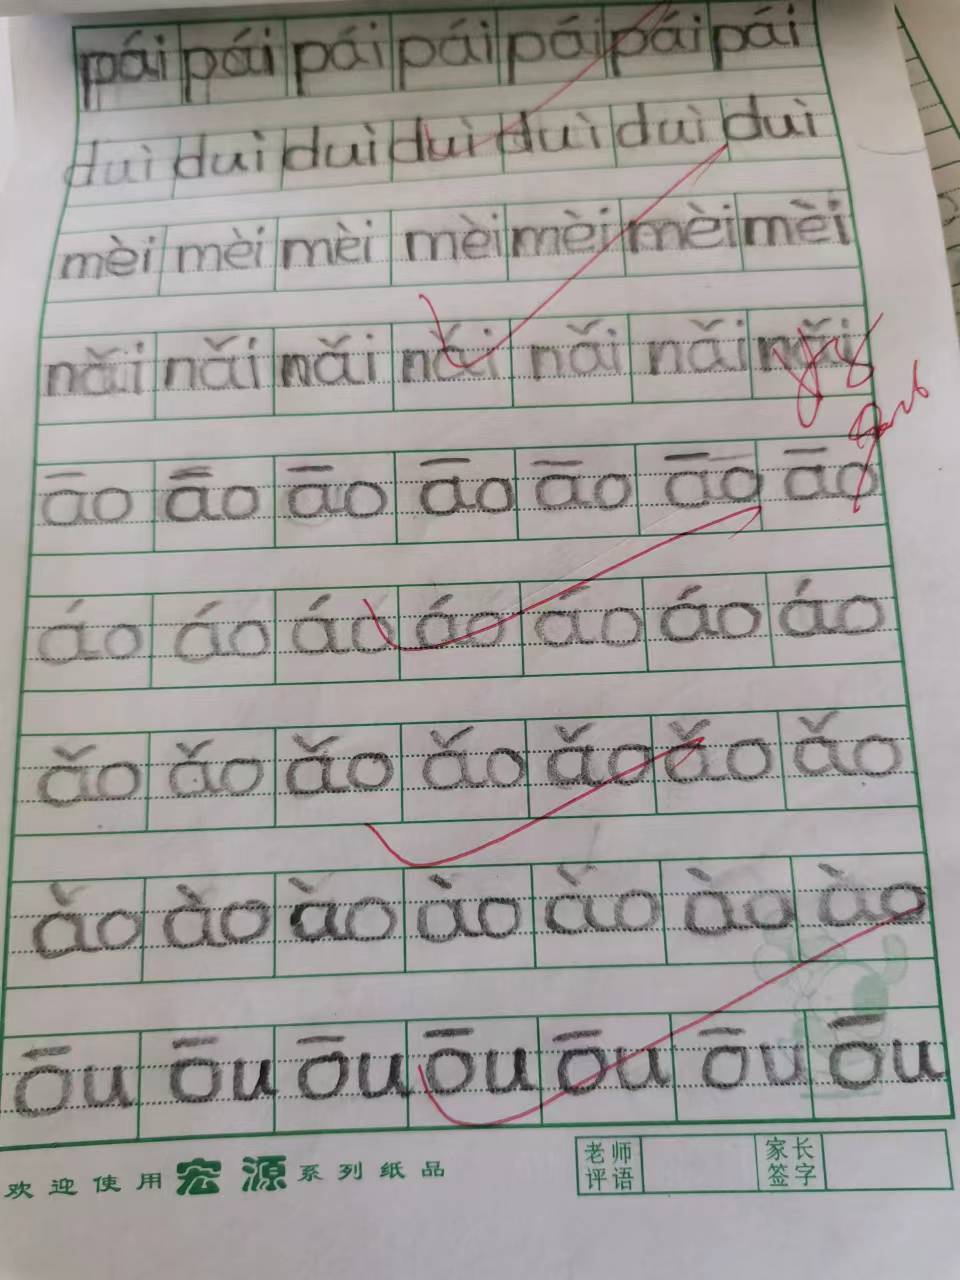 pái pái pái pái pái pái pái
duì duì duì duì duì duì duì
mèi mèi mèi mèi mèi mèi mèi
nǎi nǎi nǎi nǎi nǎi nǎi nǎi
āo āo āo āo āo āo āo
áo áo áo áo áo áo áo
ǎo ǎo ǎo ǎo ǎo ǎo ǎo
ào ào ào ào ào ào ào
ōu ōu ōu ōu ōu ōu ōu
欢迎使用宏源系列纸品
老师评语 家长签字